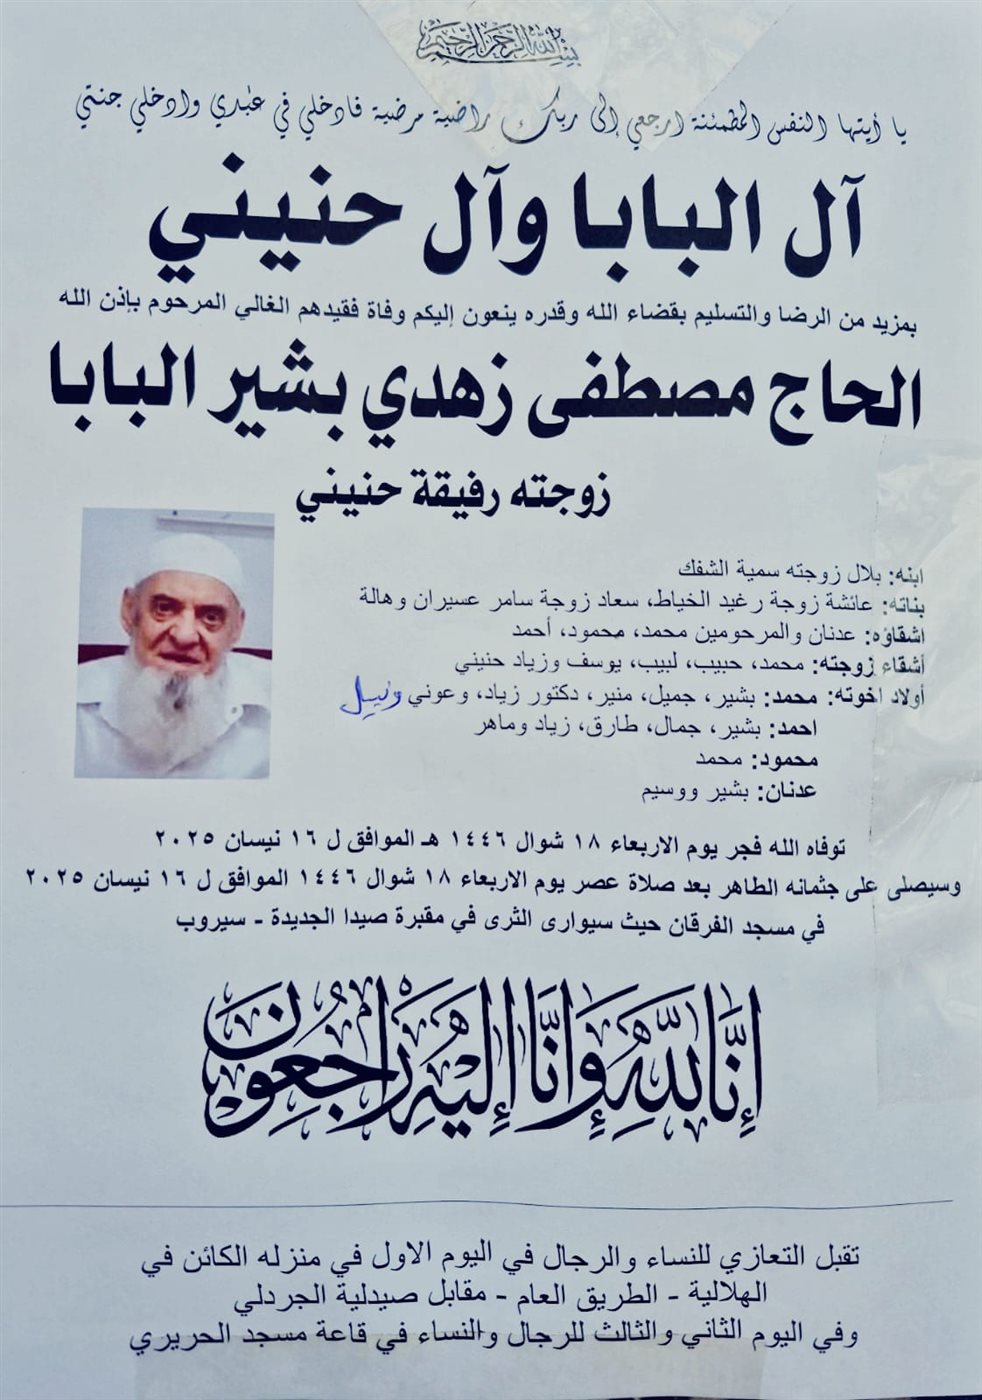 بسم الله الرحمن الرحيم
يا أيتها النفس المطمئنة ارجعي إلى ربك راضية مرضية فادخلي في عبدي وادخلي جنتي
آل البابا وآل حنيني
بمزيد من الرضا والتسليم بقضاء الله وقدره ينعون إليكم وفاة فقيدهم الغالي المرحوم بإذن الله
الحاج مصطفى زهدي بشير البابا
زوجته رفيقة حنيني
ابنه: بلال زوجته سمية الشفك
بناته: عائشة زوجة رغيد الخياط، سعاد زوجة سامر عسيران وهالة
اشقاؤه: عدنان والمرحومين محمد، محمود، أحمد
أشقاء زوجته: محمد، حبيب، لبيب، يوسف وزياد حنيني
أولاد اخوته: محمد: بشير، جميل، منير، دكتور زياد، وعوني ونبيل
احمد: بشير، جمال، طارق، زياد وماهر
محمود: محمد
عدنان: بشير ووسيم
توفاه الله فجر يوم الاربعاء ١٨ شوال ١٤٤٦ هـ الموافق ل ١٦ نيسان ٢٠٢٥
وسيصلى على جثمانه الطاهر بعد صلاة عصر يوم الاربعاء ١٨ شوال ١٤٤٦ الموافق ل ١٦ نيسان ٢٠٢٥
في مسجد الفرقان حيث سيوارى الثرى في مقبرة صيدا الجديدة - سيروب
إنا لله وإنا إليه راجعون
تقبل التعازي للنساء والرجال في اليوم الاول في منزله الكائن في
الهلالية - الطريق العام - مقابل صيدلية الجردلي
وفي اليوم الثاني والثالث للرجال والنساء في قاعة مسجد الحريري